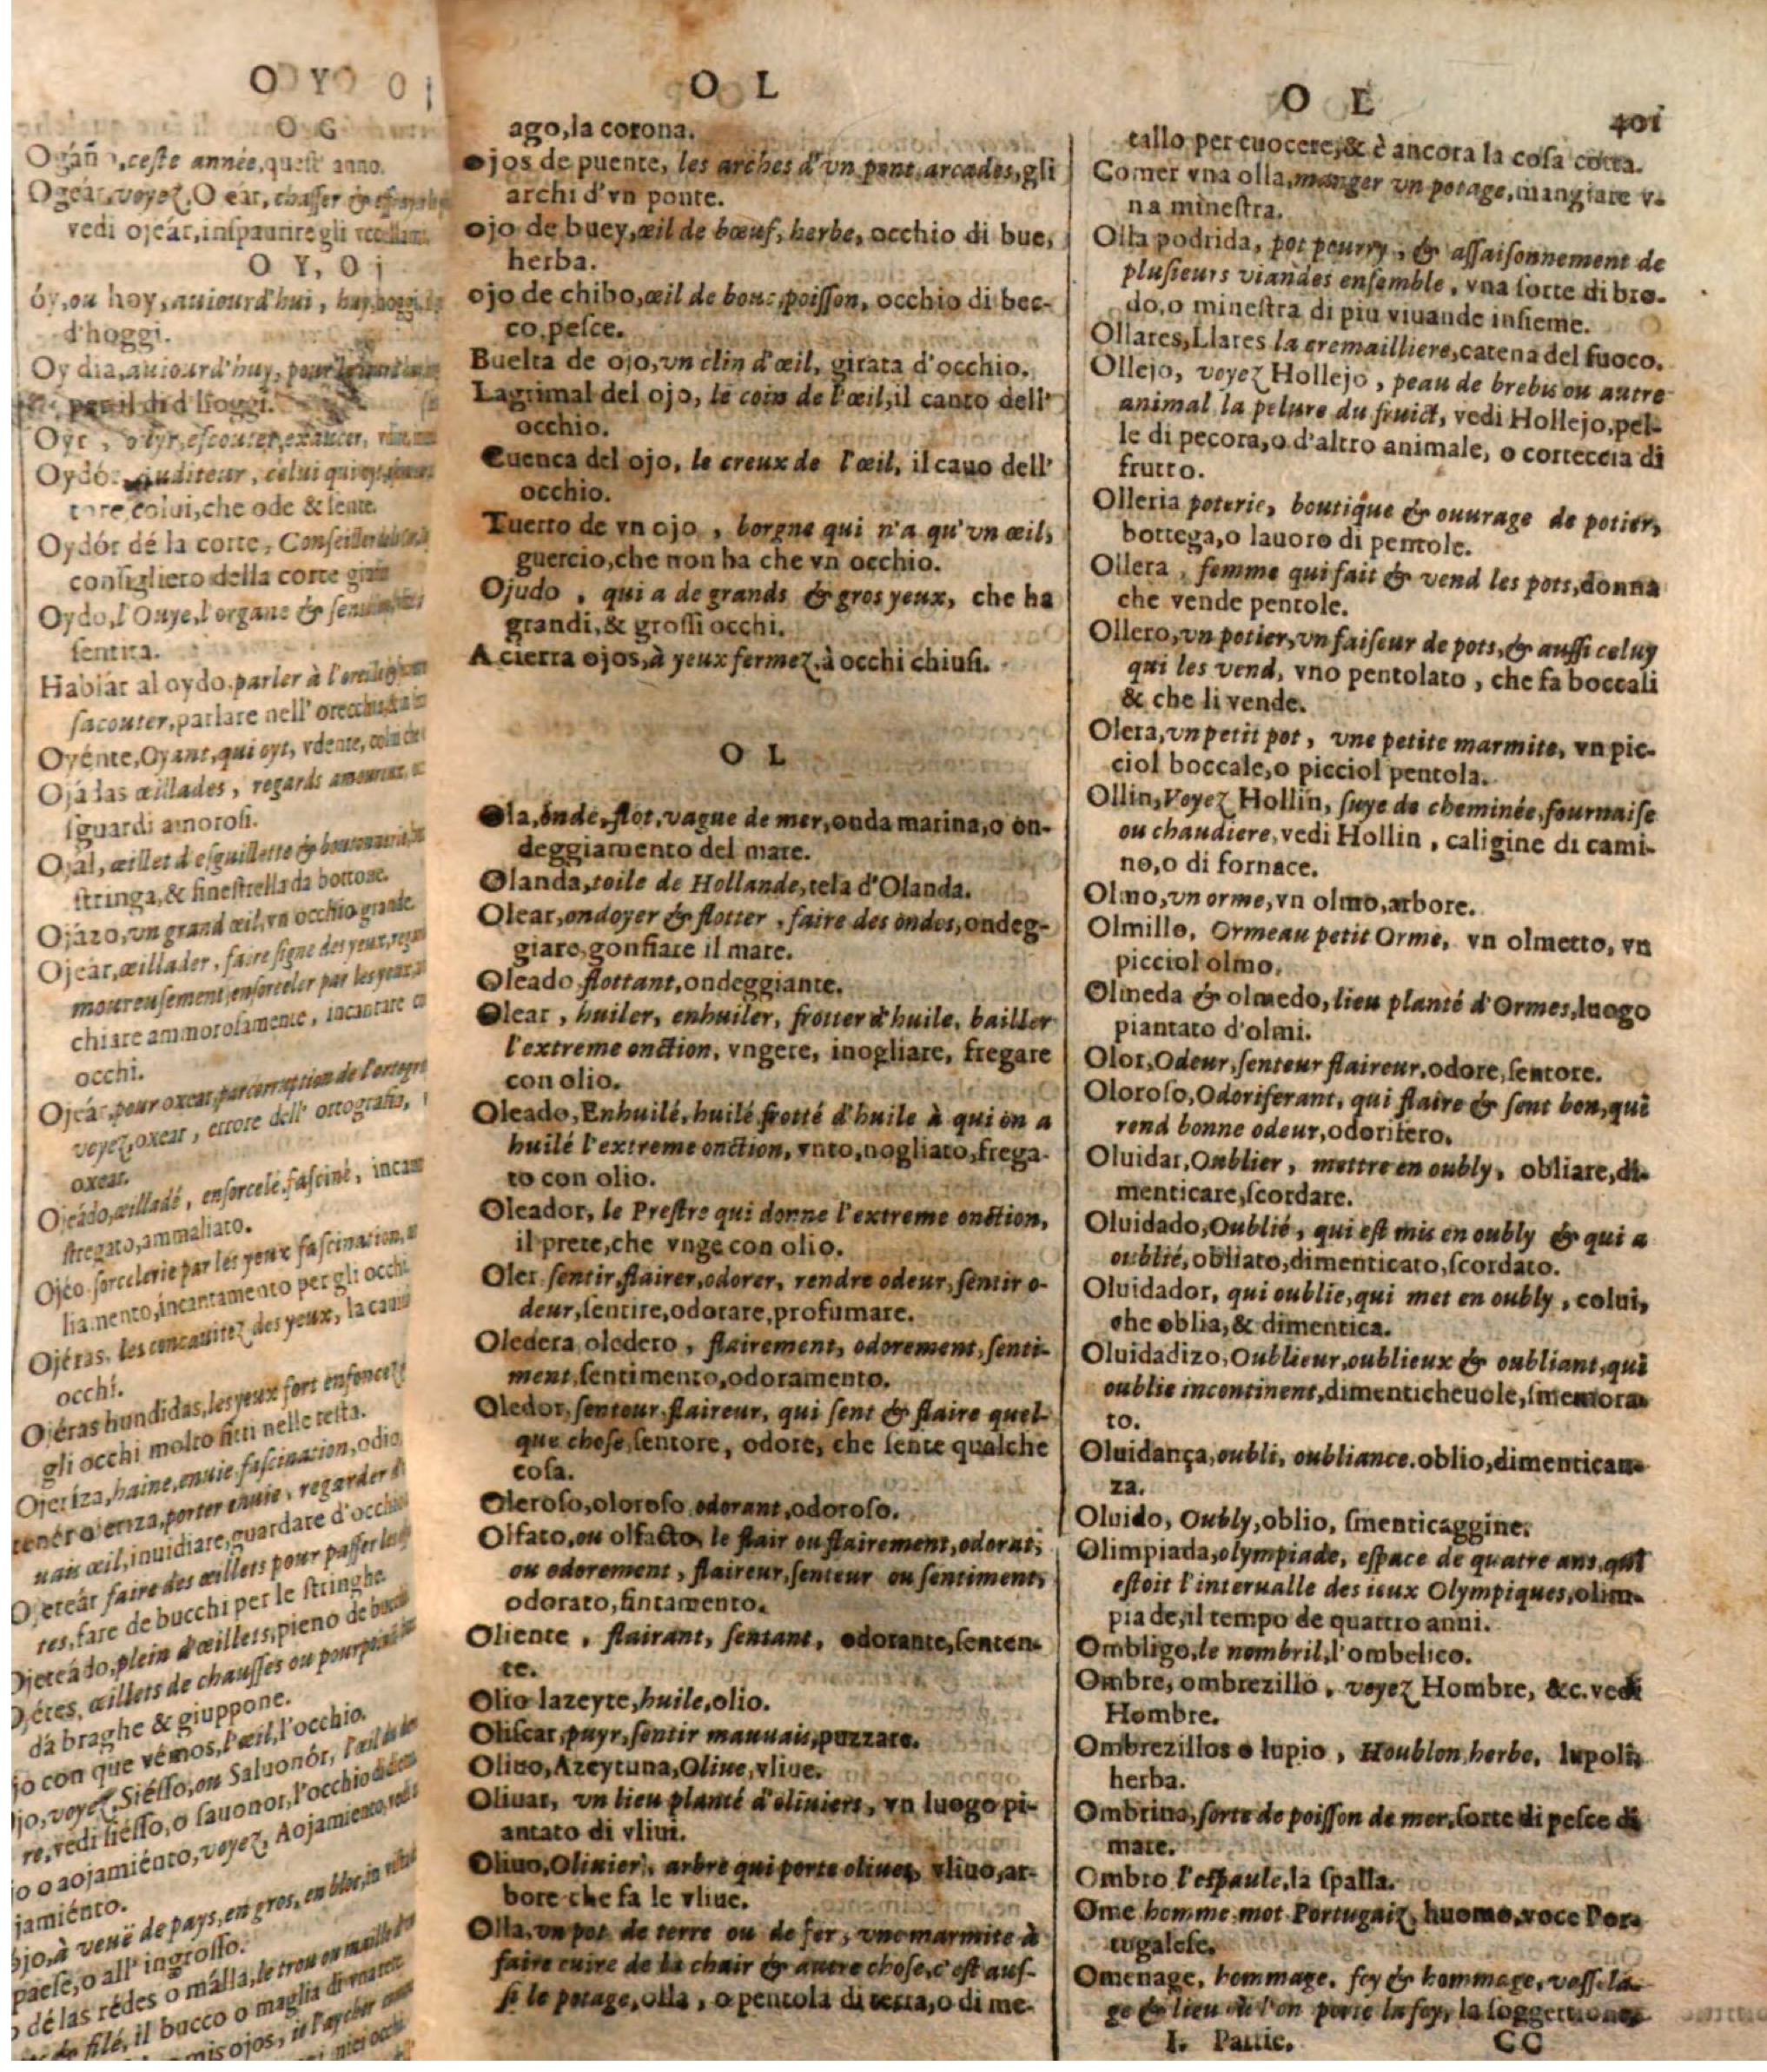 O Y O j
O G
Ogáño, ceste année, quest' anno.
Ogeár, voyez, O eár, chasser &
vedi ojeár, inspaurire gli
O Y, O j
óy, ou hoy, auiourd'hui, huy, hoggi,
d'hoggi.
Oy dia, auiourd'huy,
d'hoggi.
Oyr, escouter, exaucer,
Oydór, auditeur, celui qui oyt,
tore, colui, che ode & sente.
Oydór dé la corte, Conseiller
consigliero della corte
Oydo, l'Ouye, l'organe &
sentita.
Hablár al oydo, parler à l'oreille,
sacouter, parlare nell' orecchio,
Oyénte, Oyant, qui oyt, vdente, colui che
Ojádas œillades, regards amoureux,
sguardi amorosi.
Ojál, œillet d'esguillette & boutonniere,
stringa, & finestrella da bottone.
Ojázo, vn grand œil, vn occhio grande.
Ojeár, œillader, faire signe des yeux,
moureusement, ensorceler par les yeux,
chiare ammorosamente, incantare co
occhi.
Ojeár, pour oxear, par corruption de l'ortogra
voyez, oxear, errore dell' ortografia,
oxear.
Ojeádo, œilladé, ensorcelé, fasciné, incan
stregato, ammaliato.
Ojéo sorcelerie par les yeux fascination,
liamento, incantamento per gli occhi.
Ojéras, les concauitez des yeux, la cauità
occhi.
Ojéras hundidas, les yeux fort enfoncez,
gli occhi molto fitti nelle testa.
Ojeriza, haine, enuie, fascination, odio,
tenér ojeriza, porter enuie, regarder d'
uais œil, inuidiare, guardare d'occhio
Ojeteár faire des œillets pour passer les
tes, fare de bucchi per le stringhe.
Ojeteádo, plein d'œillets, pieno de bucchi
Ojétes, œillets de chausses ou pourpoint
da braghe & giuppone.
jo con que vémos, l'œil, l'occhio.
jo, voyez, Siésso, ou Saluonór, l'œil
re, vedi siésso, o sauonor, l'occhio
jo o aojamiénto, voyez, Aojamiento, vedi
jamiénto.
ojo, à veuë de pays, en gros, en bloc,
paese, o all' ingrosso.
dé las rédes o málla, le trou ou maille
filé, il bucco o maglia di vna rete.
mis ojos,
O L
ago, la corona.
ojos de puente, les arches d'vn pont, arcades, gli
archi d'vn ponte.
ojo de buey, œil de bœuf, herbe, occhio di bue,
herba.
ojo de chibo, œil de bouc, poisson, occhio di bec-
co, pesce.
Buelta de ojo, vn clin d'œil, girata d'occhio.
Lagrimal del ojo, le coin de l'œil, il canto dell'
occhio.
Cuenca del ojo, le creux de l'œil, il cauo dell'
occhio.
Tuerto de vn ojo, borgne qui n'a qu'vn œil,
guercio, che non ha che vn occhio.
Ojudo, qui a de grands & gros yeux, che ha
grandi, & grossi occhi.
A cierra ojos, à yeux fermez, à occhi chiusi.
O L
Ola, onde, flot, vague de mer, onda marina, o on-
deggiamento del mare.
Olanda, toile de Hollande, tela d'Olanda.
Olear, ondoyer & flotter, faire des ondes, ondeg-
giare, gonfiare il mare.
Oleado flottant, ondeggiante.
Olear, huiler, enhuiler, frotter d'huile, bailler
l'extreme onction, vngere, inogliare, fregare
con olio.
Oleado, Enhuilé, huilé frotté d'huile à qui on a
huilé l'extreme onction, vnto, nogliato, frega-
to con olio.
Oleador, le Prestre qui donne l'extreme onction,
il prete, che vnge con olio.
Oler sentir, flairer, odorer, rendre odeur, sentir o-
deur, sentire, odorare, profumare.
Oledera oledero, flairement, odorement, senti-
ment, sentimento, odoramento.
Oledor, senteur, flaireur, qui sent & flaire quel-
que chose, sentore, odore, che sente qualche
cosa.
Oleroso, oloroso odorant, odoroso.
Olfato, ou olfacto, le flair ou flairement, odorat,
ou odorement, flaireur, senteur ou sentiment,
odorato, sintamento.
Oliente, flairant, sentant, odorante, senten-
te.
Olio lazeyte, huile, olio.
Oliscar, puyr, sentir mauuais, puzzare.
Oliuo, Azeytuna, Oliue, vliue.
Oliuar, vn lieu planté d'oliuiers, vn luogo pi-
antato di vliui.
Oliuo, Oliuier, arbre qui porte oliues, vliuo, ar-
bore che fa le vliue.
Olla, vn pot de terre ou de fer, vne marmite à
faire cuire de la chair & autre chose, c'est aus-
si le potage, olla, o pentola di terra, o di me-
O L
401
tallo per cuocere, & è ancora la cosa cotta.
Comer vna olla, manger vn potage, mangiare v-
na minestra.
Olla podrida, pot pourry, & assaisonnement de
plusieurs viandes ensemble, vna sorte di bro-
do, o minestra di piu viuande insieme.
Ollares, Llares la cremailliere, catena del fuoco.
Ollejo, voyez Hollejo, peau de brebis ou autre
animal la pelure du fruict, vedi Hollejo, pel-
le di pecora, o d'altro animale, o corteccia di
frutto.
Olleria poterie, boutique & ouurage de potier,
bottega, o lauoro di pentole.
Ollera, femme qui fait & vend les pots, donna
che vende pentole.
Ollero, vn potier, vn faiseur de pots, & aussi celuy
qui les vend, vno pentolato, che fa boccali
& che li vende.
Olera, vn petit pot, vne petite marmite, vn pic-
ciol boccale, o picciol pentola.
Ollin, Voyez Hollin, suye de cheminée, fournaise
ou chaudiere, vedi Hollin, caligine di cami-
no, o di fornace.
Olmo, vn orme, vn olmo, arbore.
Olmillo, Ormeau petit Orme, vn olmetto, vn
picciol olmo.
Olmeda & olmedo, lieu planté d'Ormes, luogo
piantato d'olmi.
Olor, Odeur, senteur flaireur, odore, sentore.
Oloroso, Odoriferant, qui flaire & sent bon, qui
rend bonne odeur, odorifero.
Oluidar, Oublier, mettre en oubly, obliare, di-
menticare, scordare.
Oluidado, Oublié, qui est mis en oubly & qui a
oublié, obliato, dimenticato, scordato.
Oluidador, qui oublie, qui met en oubly, colui,
che oblia, & dimentica.
Oluidadizo, Oublieur, oublieux & oubliant, qui
oublie incontinent, dimenticheuole, smemora-
to.
Oluidança, oubli, oubliance. oblio, dimentican-
za.
Oluido, Oubly, oblio, smenticaggine.
Olimpiada, olympiade, espace de quatre ans, qui
estoit l'interualle des ieux Olympiques, olim-
piade, il tempo de quattro anni.
Ombligo, le nombril, l'ombelico.
Ombre, ombrezillo, voyez Hombre, &c. vedi
Hombre.
Ombrezillos o lupio, Houblon, herbe, lupoli,
herba.
Ombrina, sorte de poisson de mer, sorte di pesce di
mare.
Ombro l'espaule, la spalla.
Ome homme mot Portugaiz, huomo, voce Por-
tugalese.
Omenage, hommage, foy & hommage, vassela-
ge & lieu où l'on porte la foy, la soggettione,
I. Partie. CC